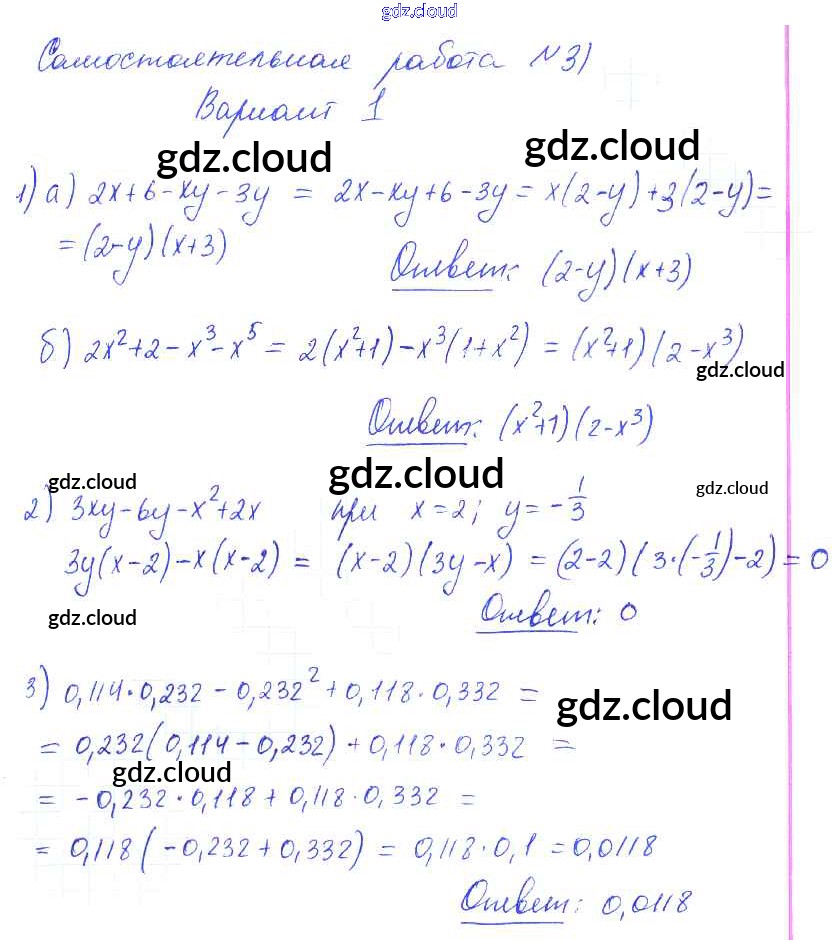 gdz.cloud
Самостоятельная работа №3)
Вариант 1
gdz.cloud gdz.cloud
1) а) 2x+6-xy-3y = 2x-xy+6-3y = x(2-y)+3(2-y)=
=(2-y)(x+3)
Ответ: (2-y)(x+3)
б) 2x²+2-x³-x⁵ = 2(x²+1)-x³(1+x²) = (x²+1)(2-x³)
gdz.cloud
Ответ: (x²+1)(2-x³)
gdz.cloud gdz.cloud gdz.cloud
2) 3xy-6y-x²+2x при x=2; y=-1/3
3y(x-2)-x(x-2) = (x-2)(3y-x) = (2-2)(3·(-1/3)-2)=0
gdz.cloud Ответ: 0
3) 0,114·0,232-0,232²+0,118·0,332 =
gdz.cloud
= 0,232(0,114-0,232)+0,118·0,332 =
gdz.cloud
= -0,232·0,118+0,118·0,332 =
= 0,118(-0,232+0,332) = 0,118·0,1=0,0118
Ответ: 0,0118